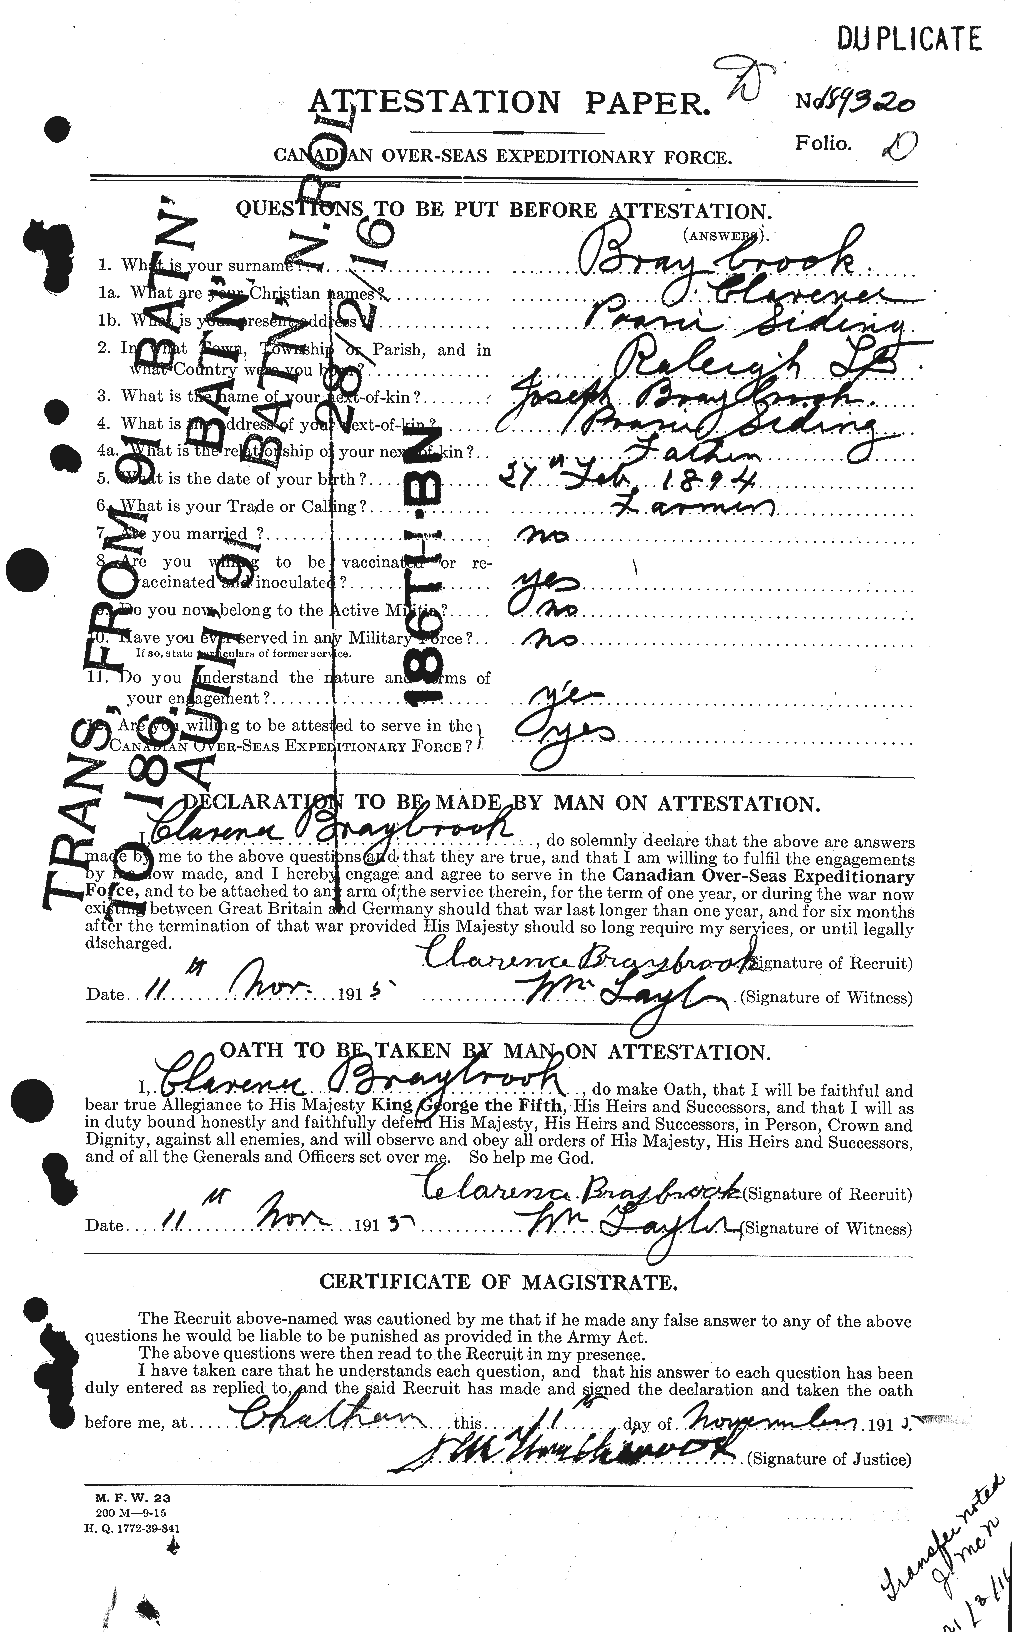 DUPLICATE
D
ATTESTATION PAPER.
No. 189320
Folio. D
CANADIAN OVER-SEAS EXPEDITIONARY FORCE.
QUESTIONS TO BE PUT BEFORE ATTESTATION.
(ANSWERS).
1. What is your surname? Braybrook.
1a. What are your Christian names? Clarence
1b. What is your present address? Prairie Siding.
2. In what Town, Township or Parish, and in
what Country were you born? Raleigh Tp.
3. What is the name of your next-of-kin? Joseph Braybrook.
4. What is the address of your next-of-kin? Prairie Siding
4a. What is the relationship of your next-of-kin? Father
5. What is the date of your birth? 27th Feb. 1894
6. What is your Trade or Calling? Farmer
7. Are you married? no
8. Are you willing to be vaccinated or re-
vaccinated and inoculated? yes
9. Do you now belong to the Active Militia? no
10. Have you ever served in any Military Force? no
If so, state particulars of former service.
11. Do you understand the nature and terms of
your engagement? yes
12. Are you willing to be attested to serve in the
CANADIAN OVER-SEAS EXPEDITIONARY FORCE? yes
TRANS, FROM 91 BATN'
TO 186. BATN'
AUTH, 91 BATN' N.ROL
28/2/16
186TH·BN
DECLARATION TO BE MADE BY MAN ON ATTESTATION.
I, Clarence Braybrook, do solemnly declare that the above are answers
made by me to the above questions and that they are true, and that I am willing to fulfil the engagements
by me now made, and I hereby engage and agree to serve in the Canadian Over-Seas Expeditionary
Force, and to be attached to any arm of the service therein, for the term of one year, or during the war now
existing between Great Britain and Germany should that war last longer than one year, and for six months
after the termination of that war provided His Majesty should so long require my services, or until legally
discharged.
Clarence Braybrook (Signature of Recruit)
Date 11th Nov. 1915 Wm Taylor (Signature of Witness)
OATH TO BE TAKEN BY MAN ON ATTESTATION.
I, Clarence Braybrook, do make Oath, that I will be faithful and
bear true Allegiance to His Majesty King George the Fifth, His Heirs and Successors, and that I will as
in duty bound honestly and faithfully defend His Majesty, His Heirs and Successors, in Person, Crown and
Dignity, against all enemies, and will observe and obey all orders of His Majesty, His Heirs and Successors,
and of all the Generals and Officers set over me. So help me God.
Clarence Braybrook (Signature of Recruit)
Date 11th Nov. 1915 Wm Taylor (Signature of Witness)
CERTIFICATE OF MAGISTRATE.
The Recruit above-named was cautioned by me that if he made any false answer to any of the above
questions he would be liable to be punished as provided in the Army Act.
The above questions were then read to the Recruit in my presence.
I have taken care that he understands each question, and that his answer to each question has been
duly entered as replied to, and the said Recruit has made and signed the declaration and taken the oath
before me, at Chatham this 11th day of November 1915.
(Signature of Justice)
M. F. W. 23
200 M—9-15
H. Q. 1772-39-841
Transfer noted
J. McN
21/3/16